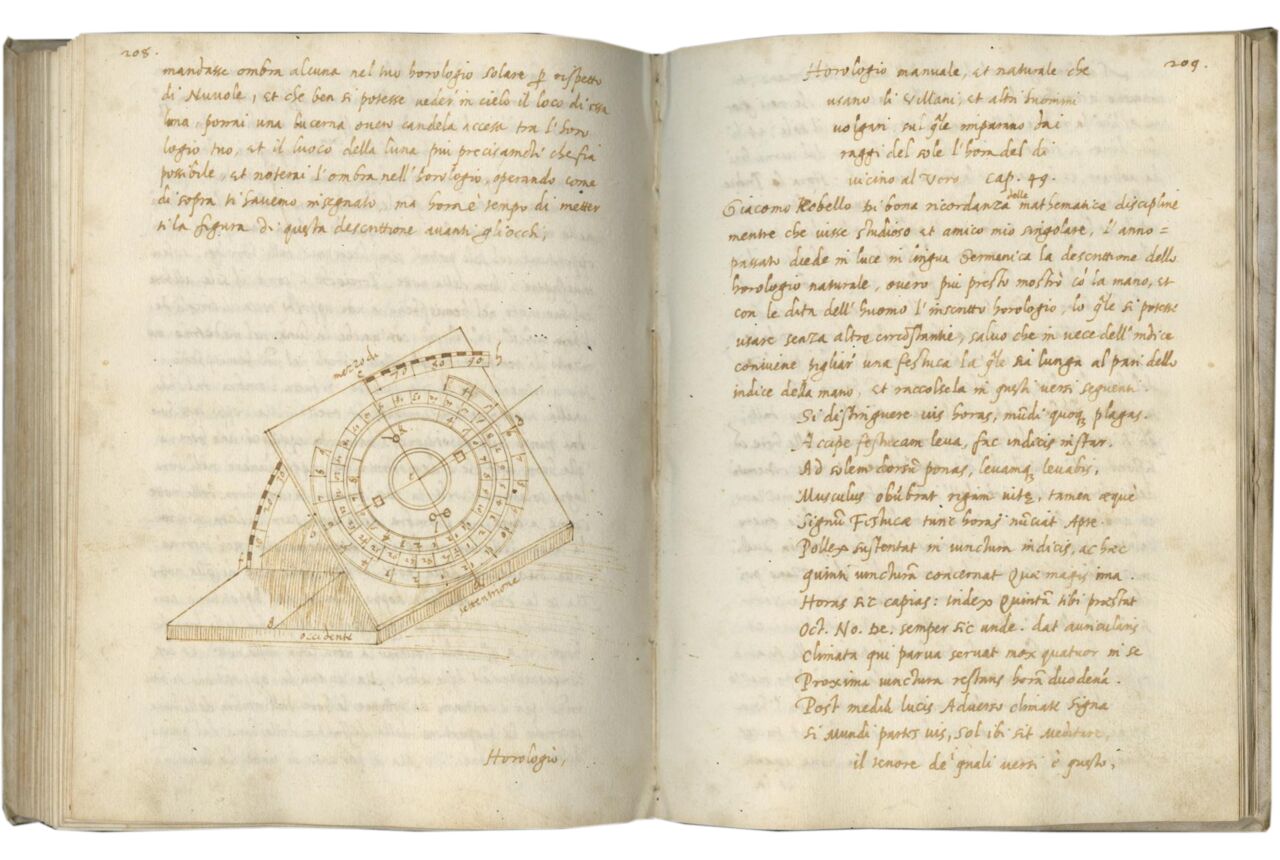 208.
mandasse ombra alcuna nel tuo horologio solare p rispetto
di Nuvole, et che ben si potesse veder in cielo il loco di essa
luna, porrai una lucerna overo candela accesa tra l'horo
logio tuo, et il luoco della luna piu precisamẽte che sia
possibile, et noterai l'ombra nell'horologio, operando come
di sopra ti havemo insegnato, ma hora è tempo di metter
ti la figura di questa descrittione avanti gli occhi,
mezzodi
occidente
settentrione
Horologio,
209.
Horologio manuale, et naturale che
usano li Villani, et altri huomini
volgari sul q̃le imparano dai
raggi del sole l'hora del di
vicino al Vero cap. 49.
Giacomo Kobello di bona ricordanza della mathematice discipline
mentre che visse studioso et amico mio singolare, l'anno=
passato diede in luce in lingua Germanica la descrittione dello
horologio naturale, overo piu presto mostrò cõ la mano, et
con le dita dell'huomo l'inscritto horologio, lo q̃le si potesse
usare senza altre circõstantie, salvo che in vece dell'indice
conviene pigliar una festuca la q̃le sia lunga al pari dello
indice della mano, et raccolsela in questi versi seguenti
Si distinguere vis horas, mũdi quoq plagas.
Accipe festucam leva, fac indicis instar.
Ad solem dorsũ ponas, levamq levabis,
Musculus obũbrat rigam vitę, tamen æquè
Signũ Festucæ tunc horas nũciat Apte.
Pollex sustentat in iunctura indicis, ac hęc
quinti iuncturã concernat Quã magis ima.
Horas sic capias: index Quintã tibi prestat
Oct. No. De. semper sic unde. dat auricularis
Climata qui parva servat mox quatuor in se
Proxima iunctura restans horã duodenã.
Post mediũ lucis Adverso climate signa
Si Mundi partes vis, sol ibi sit Meditare,
il tenore de quali versi è questo,